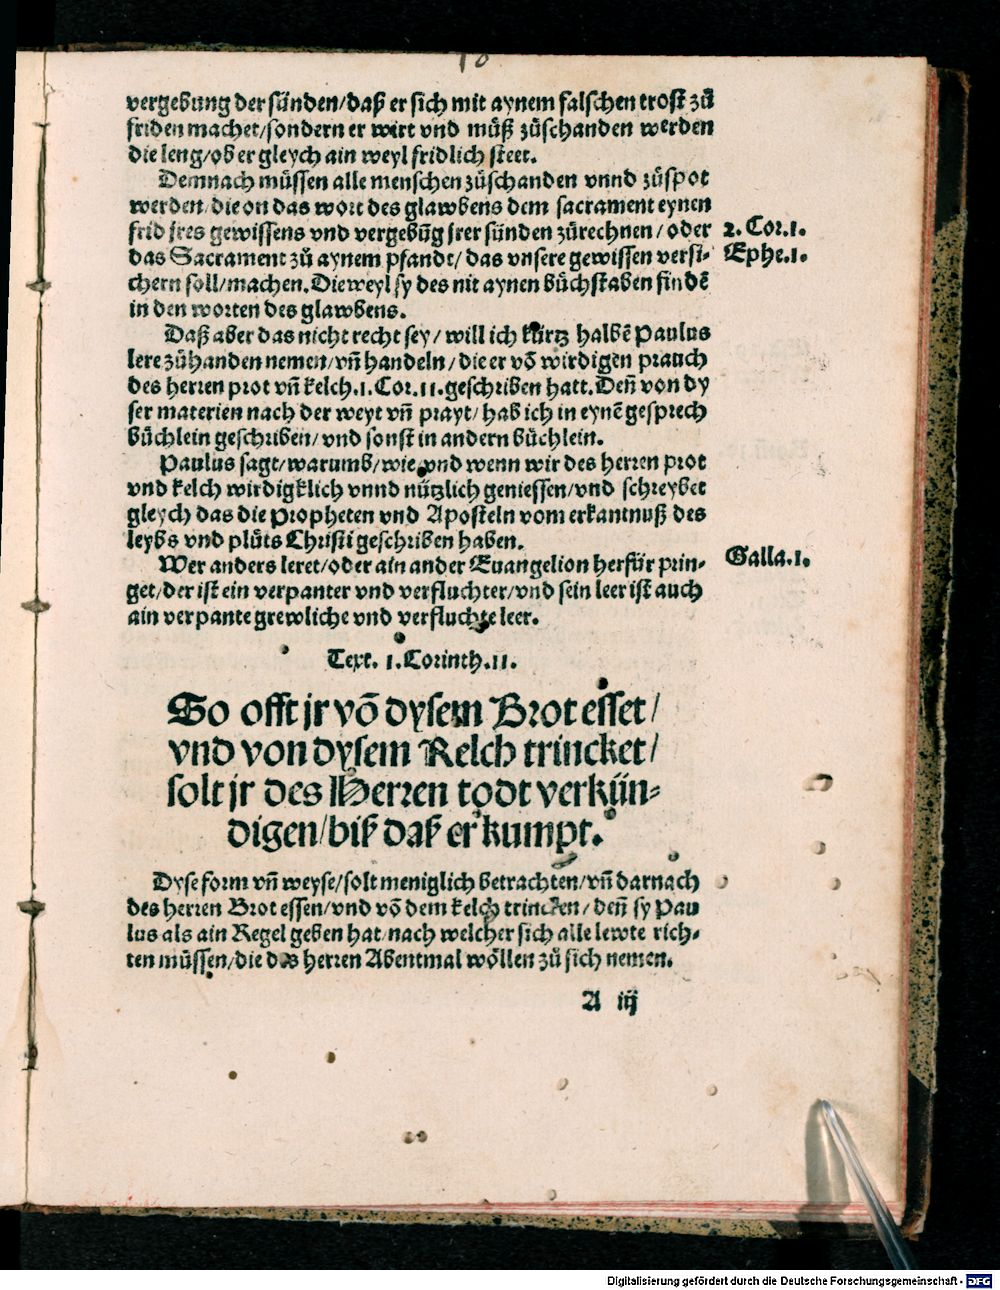 vergebung der sünden/daß er sich mit aynem falschen trost zů
friden machet/sondern er wirt vnd můß zůschanden werden
die leng/ob er gleych ain weyl fridlich steet.
Demnach müssen alle menschen zůschanden vnnd zůspot
werden/die on das wort des glawbens dem sacrament eynen
frid jres gewissens vnd vergebũg jrer sünden zůrechnen/oder
das Sacrament zů aynem pfandt/das vnsere gewissen versi-
chern soll/machen. Dieweyl sy des nit aynen bůchstaben findẽ
in den worten des glawbens.
2. Cor. 1.
Ephe. 1.
Daß aber das nicht recht sey/will ich kürtz halbẽ Paulus
lere zůhanden nemen/vñ handeln/die er võ wirdigen prauch
des herren prot vñ kelch. 1. Cor. 11. geschriben hatt. Deñ von dy
ser materien nach der weyt vñ prayt/hab ich in eynẽ gesprech
büchlein geschriben/vnd sonst in andern büchlein.
Paulus sagt/warumb/wie/vnd wenn wir des herren prot
vnd kelch wirdigklich vnnd nützlich geniessen/vnd schreybet
gleych das die Propheten vnd Aposteln vom erkantnuß des
leybs vnd plůts Christi geschriben haben.
Wer anders leret/oder ain ander Euangelion herfür prin-
get/der ist ein verpanter vnd verfluchter/vnd sein leer ist auch
ain verpante grewliche vnd verfluchte leer.
Galla. 1.
Text. 1. Corinth. 11.
So offt jr võ dysem Brot esset/
vnd von dysem Kelch trincket/
solt jr des Herren todt verkün-
digen/biß daß er kumpt.
Dyse form vñ weyse/solt meniglich betrachten/vñ darnach
des herren Brot essen/vnd võ dem kelch trincken/deñ sy Pau
lus als ain Regel geben hat/nach welcher sich alle lewte rich-
ten müssen/die des herren Abentmal wöllen zů sich nemen.
A iij
Digitalisierung gefördert durch die Deutsche Forschungsgemeinschaft - DFG